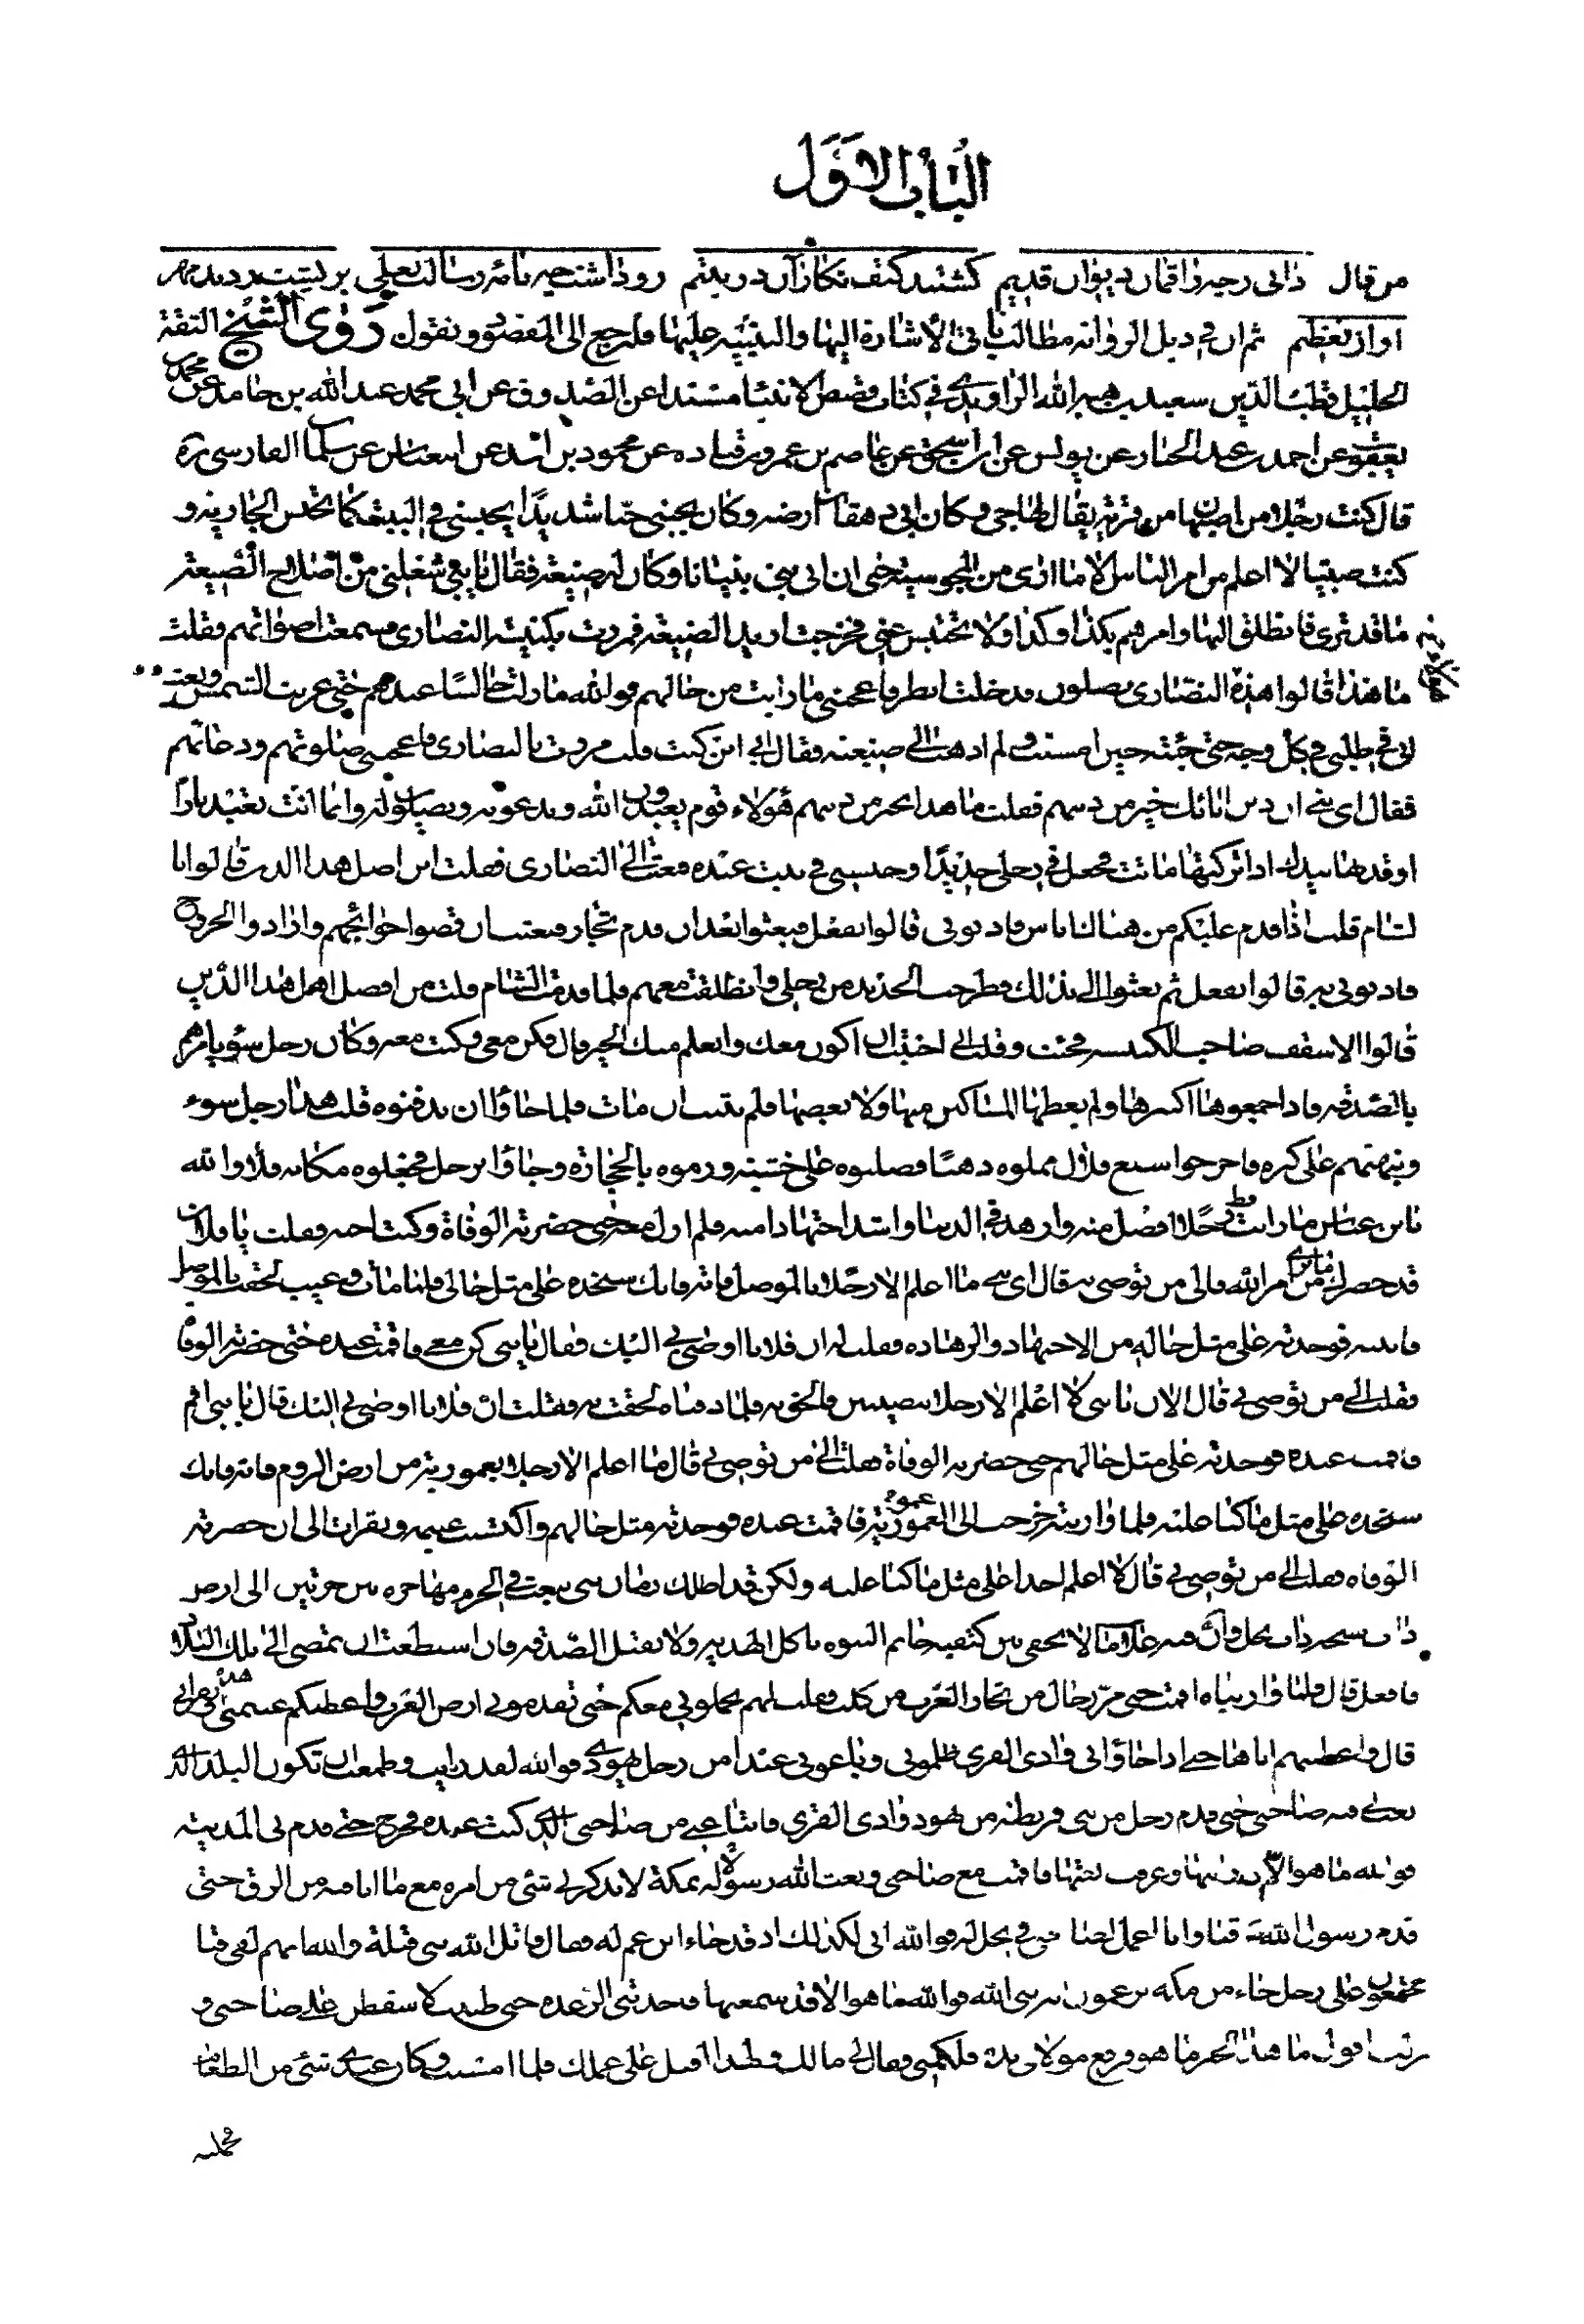 الباب الاول
من قال ذابى رحيم زاقمان ديوان قديم كشتند كتف نكازآن دو يتيم رو ذاشت چه نامهٔ رسالت تعليم بر پشت
او از تعظيم ثم ان فى ذيل الرواية مطالب ياتى الاشارة اليها والتنبيه عليها ولنرجع الى المقصود ونقول روى الشيخ الثقة
الجليل قطب الدين سعيد بن هبة الله الراوندى فى كتاب قصص الانبياء مسندا عن الصدوق عن ابى محمد عبد الله بن حامد عن محمد
يعقوب عن احمد بن عبد الجبار عن يونس عن ابن اسحق عن عاصم بن عمرو بن قتادة عن محمود بن اسد عن ابن عباس عن سلمان الفارسى ره
قال كنت رجلا من اصبهان من قرية يقال لها جى وكان ابى دهقان ارضه وكان يحبنى حبا شديدا يحبسنى فى البيت كما تحبس الجارية و
كنت صبيا لا اعلم من امر الناس الا ما ارى من المجوسية حتى ان ابى بنى بنيانا وكان له ضيعة فقال يا بنى شغلنى من اصلاح الضيعة
ما قد ترى فانطلق اليها وامرهم بكذا وكذا ولا تحتبس عنى فخرجت اريد الضيعة فمررت بكنيسة النصارى فسمعت اصواتهم فقلت
ما هذا قالوا هذه النصارى يصلون فدخلت انظر فاعجبنى ما رايت من حالهم فوالله ما زلت جالسا عندهم حتى غربت الشمس وبعث
ابى فى طلبى فى كل وجه حتى جئته حين امسيت ولم اذهب الى ضيعته فقال ابى اين كنت قلت مررت بالنصارى فاعجبنى صلوتهم ودعاؤهم
فقال اى بنى ان دين ابائك خير من دينهم فقلت ما هذا بخير من دينهم هؤلاء قوم يعبدون الله ويدعونه ويصلون له وانما انت تعبد نارا
اوقدتها بيدك اذا تركتها ماتت فجعل فى رجلى حديدا وحبسنى فى بيت عنده فبعثت الى النصارى فقلت اين اصل هذا الدين قالوا بالـ
لشام قلت اذا قدم عليكم من هناك ناس فاذنونى قالوا نفعل فبعثوا بعد ان قدم تجار فبعثت ان قضوا حوائجهم وارادوا الخروج
فاذنونى به قالوا نفعل ثم بعثوا الى بذلك فطرحت الحديد من رجلى وانطلقت معهم فلما قدمت الشام قلت من افضل اهل هذا الدين
قالوا الاسقف صاحب الكنيسة فجئت وقلت انى احببت ان اكون معك واتعلم منك الخير قال فكن معى فكنت معه وكان رجل سوء يامرهم
بالصدقة فاذا جمعوها اكتنزها ولم يعطها المساكين منها ولا بعضها فلم يلبث ان مات فلما جاؤا ان يدفنوه قلت هذا رجل سوء
ونبهتهم على كنزه فاخرجوا سبع قلال مملوة ذهبا فصلبوه على خشبة ورموه بالحجارة وجاؤا برجل فجعلوه مكانه فلا والله
يابن عباس ما رايت رجلا قط افضل منه وازهد فى الدنيا واشد اجتهادا منه فلم ازل معه حتى حضرته الوفاة وكنت احبه فقلت يا فلان
قد حضرك ما ترى من امر الله فالى من توصى بى قال اى بنى ما اعلم الا رجلا بالموصل فاته فانك ستجده على مثل حالى فلما مات وغيب لحقت بالموصل
فاتيته فوجدته على مثل حاله من الاجتهاد والزهادة فقلت له ان فلانا اوصى بى اليك فقال يا بنى كن معى فاقمت عنده حتى حضرته الوفا
فقلت الى من توصى بى قال الان يا بنى لا اعلم الا رجلا بنصيبين فالحق به فلما دفناه لحقت به فقلت ان فلانا اوصى بى اليك قال يا بنى اقم
فاقمت عنده فوجدته على مثل حالهم حتى حضرته الوفاة فقلت الى من توصى بى قال ما اعلم الا رجلا بعمورية من ارض الروم فاته فانك
ستجده على مثل ما كنا عليه فلما واريته خرجت الى العمورية عمور فاقمت عنده فوجدته مثل حالهم واكتسبت غنيمة وبقرات الى ان حضرته
الوفاه فقلت الى من توصى بى قال لا اعلم احدا على مثل ما كنا عليه ولكن قد اظلك زمان نبى يبعث فى الحرم مهاجره بين حرتين الى ارض
ذات سبخة ذات نخل وان فيه علامات لا تخفى بين كتفيه خاتم النبوه ياكل الهدية ولا يقبل الصدقه فان استطعت ان تمضى الى تلك البلاد
فافعل قال فلما واريناه اقمت حتى مر رجال من تجار العرب من كلب فقلت لهم تحملونى معكم حتى تقدمونى ارض العرب واعطيكم غنيمتى هذه وبقراتى
قال فاعطيتهم اياها حتى اذا جاؤا بى وادى القرى ظلمونى وباعونى عبدا من رجل يهودى فوالله لقد رايت وطمعت ان تكون البلد الذى
نعت فيه صاحبى حتى قدم رجل من بنى قريظة من يهود وادى القرى فابتاعنى من صاحبى الذى كنت عنده فخرج حتى قدم بى المدينة
فوالله ما هو الا ان رايتها وعرفت نعتها فاقمت مع صاحبى وبعث الله رسوله بمكة لا يذكر لى شئ من امره مع ما انا فيه من الرق حتى
قدم رسول الله قبا وانا اعمل لصاحبى فى نخل له فوالله انى لكذلك اذ قد جاء ابن عم له فقال قاتل الله بنى قيلة والله انهم لفى قبا
مجتمعون على رجل جاء من مكه يزعمون انه نبى الله فوالله ما هو الا قد سمعتها فاخذتنى الرعده حتى ظننت لاسقطن على صاحبى و
نزلت اقول ما هذا الخبر ما هو فرفع مولاى يده فلكمنى وقال مالك ولهذا اقبل على عملك فلما امسيت وكان عندى شئ من الطعام
فحملته